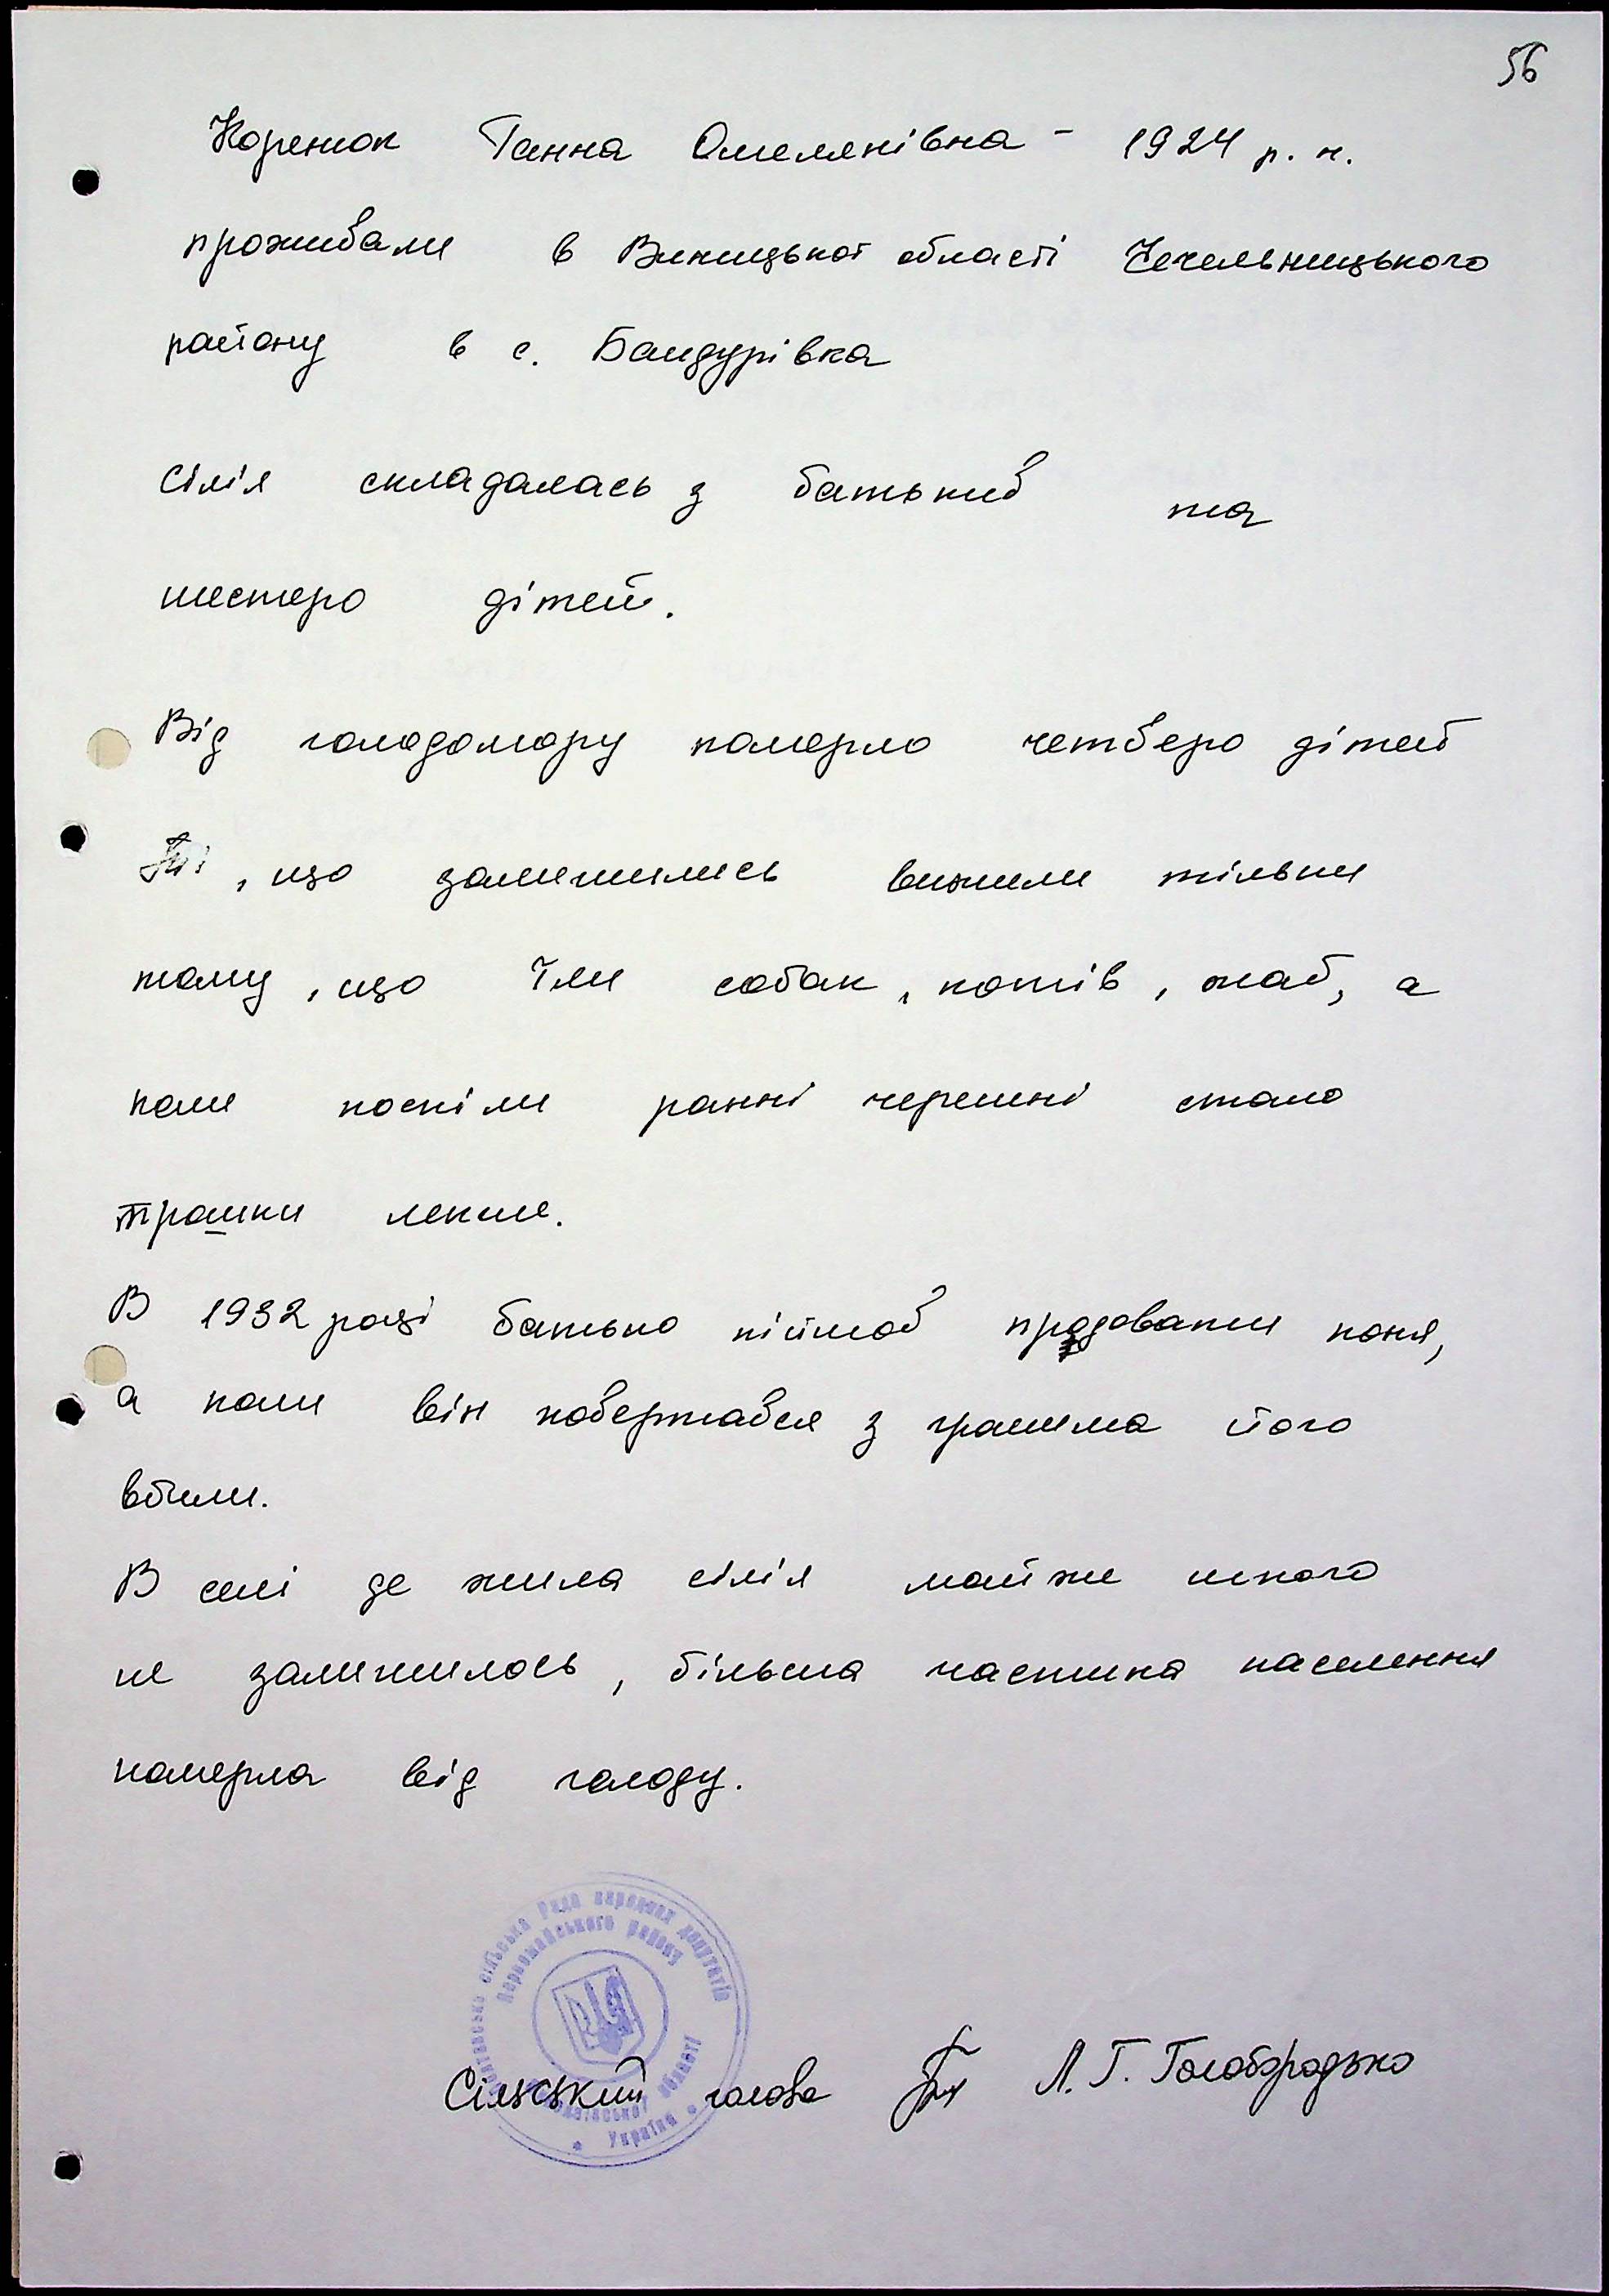 56
Коренюк Ганна Омелянівна - 1924 р. н.
проживали в Виницької області Чечельницького
району в с. Бандурівка
Сімія складалась з батьків та
шестеро дітей.
Від голодомору померло четверо дітей
Ті, що залишились вижили тільки
тому, що їли собак, котів, жаб, а
коли поспіли ранні черешні стало
трашки лекше.
В 1932 році батько пішов продовати коня,
а коли він повертався з грашима його
вбили.
В селі де жила сімія майже нікого
не залишилось, більша частина населення
померла від голоду.
сільська Рада народних депутатів
Первомайського району
області
Україна
Сільський голова Л. Г. Голобородько